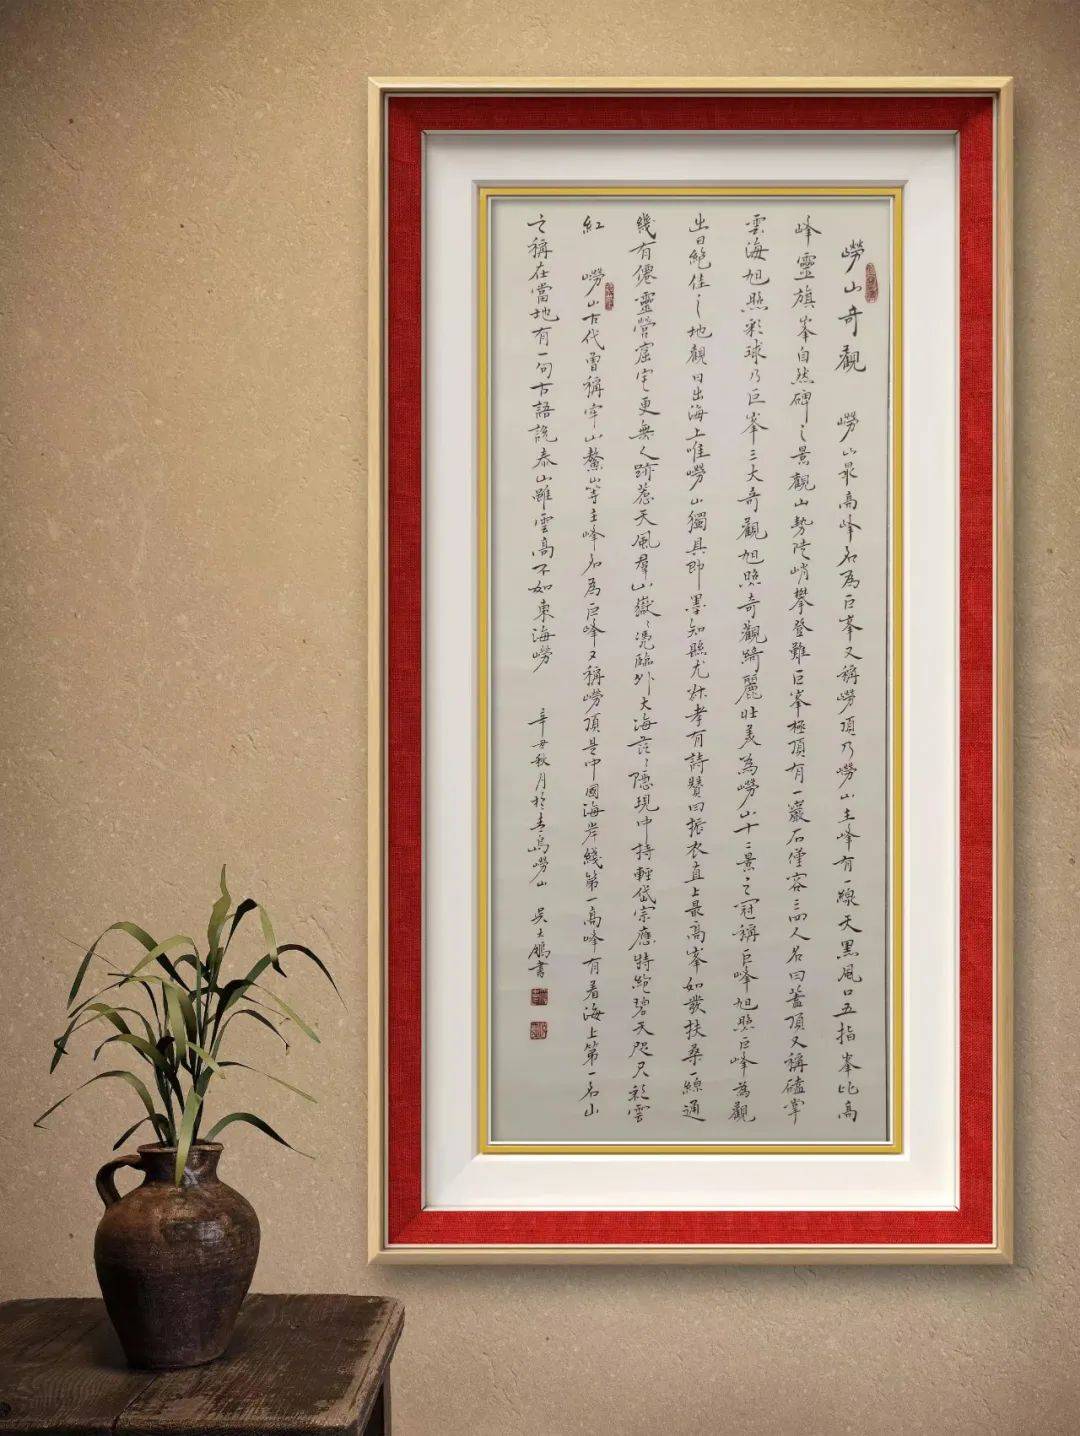 嶗山奇觀 嶗山最高峰名為巨峯又稱嶗頂乃嶗山主峰有一線天黑風口五指峯比高
峰靈旗峯自然碑之景觀山勢陡峭攀登難巨峯極頂有一巖石僅容三四人名曰蓋頂又稱磕掌
雲海旭照彩球乃巨峯三大奇觀旭照奇觀綺麗壯美為嶗山十二景之冠稱巨峰旭照巨峰為觀
出日絕佳之地觀日出海上唯嶗山獨具即墨知縣尤淑孝有詩贊曰振衣直上最高峯如發扶桑一線通
幾有僊靈營窟宅更無人跡惹天風羣山嶽嶽憑臨外大海茫茫隱現中持輕岱宗應特絕碧天咫尺彩雲
紅 嶗山古代曾稱牢山鰲山等主峰名為巨峰又稱嶗頂是中國海岸綫第一高峰有着海上第一名山
之稱在當地有一句古語說泰山雖雲高不如東海嶗 辛丑秋月於青島嶗山 吳大鵬書